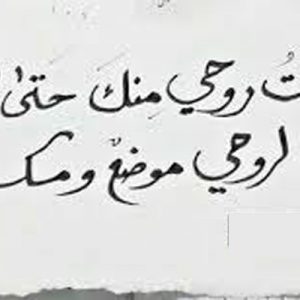 تُ روحي مِنكَ حَتىٰ
لروحي موضعٌ ومسك